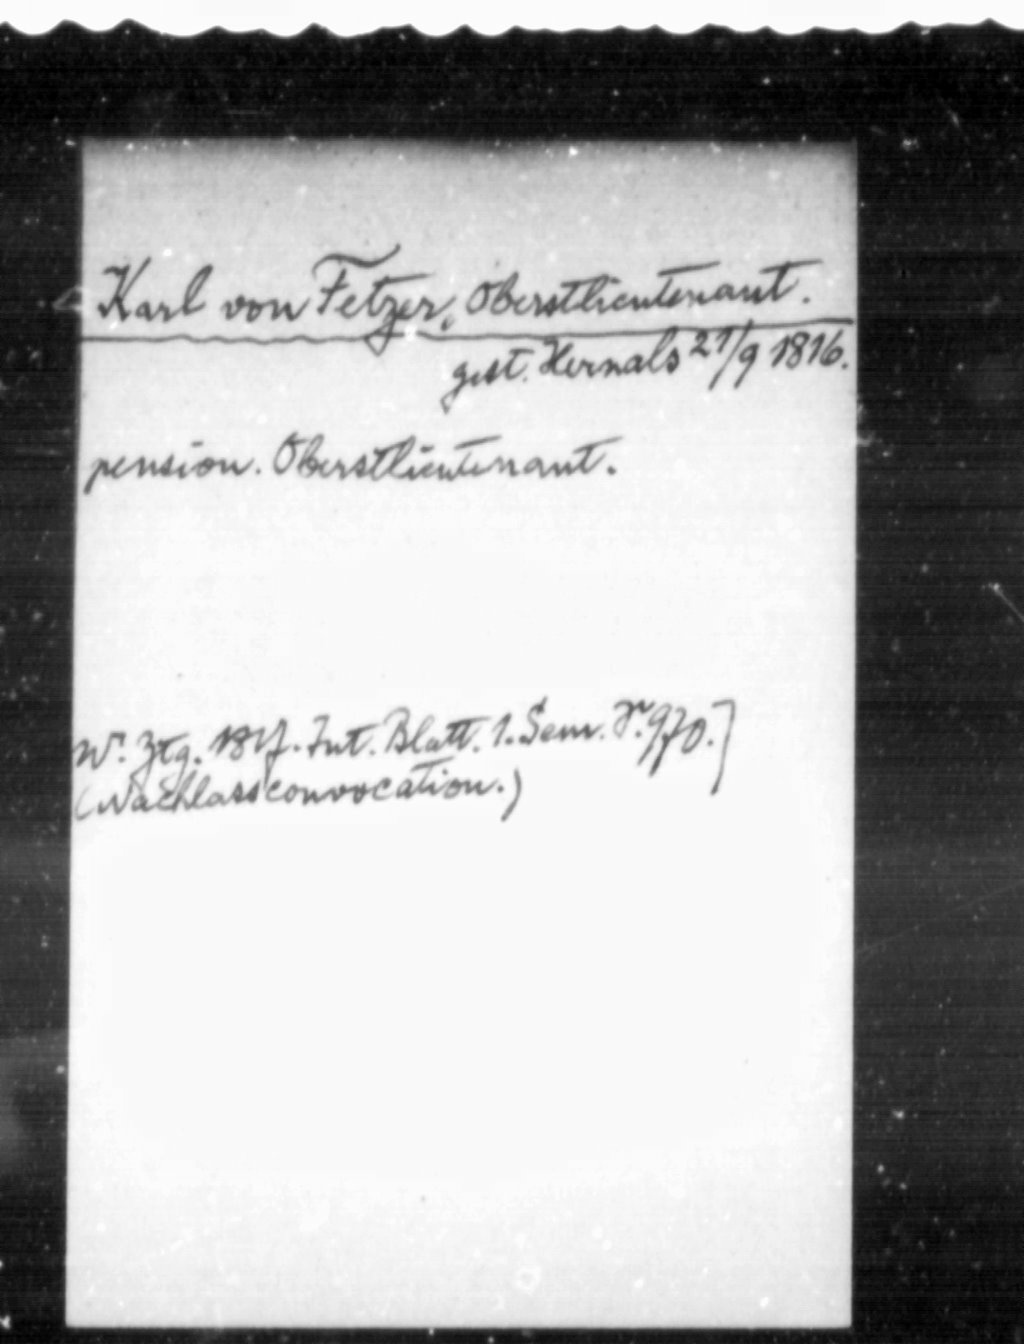 Karl von Fetzer, Oberstlieutenant.
gest. Hernals 21/9 1816.
pension. Oberstlieutenant.
Wr. Ztg. 1817. Int. Blatt. 1. Sem. S. 970.]
(Nachlassconvocation.)